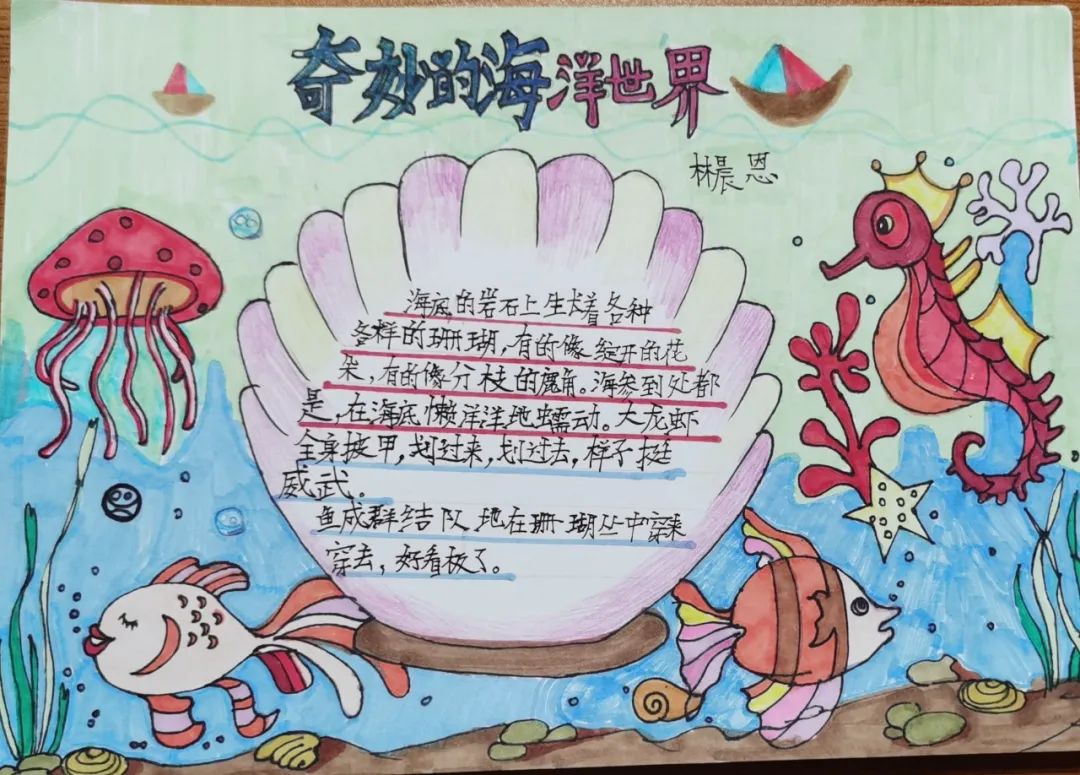 奇妙的海洋世界
林晨恩
海底的岩石上生长着各种
各样的珊瑚，有的像绽开的花
朵，有的像分枝的鹿角。海参到处都
是，在海底懒洋洋地蠕动。大龙虾
全身披甲，划过来，划过去，样子挺
威武。
鱼成群结队地在珊瑚丛中穿来
穿去，好看极了。